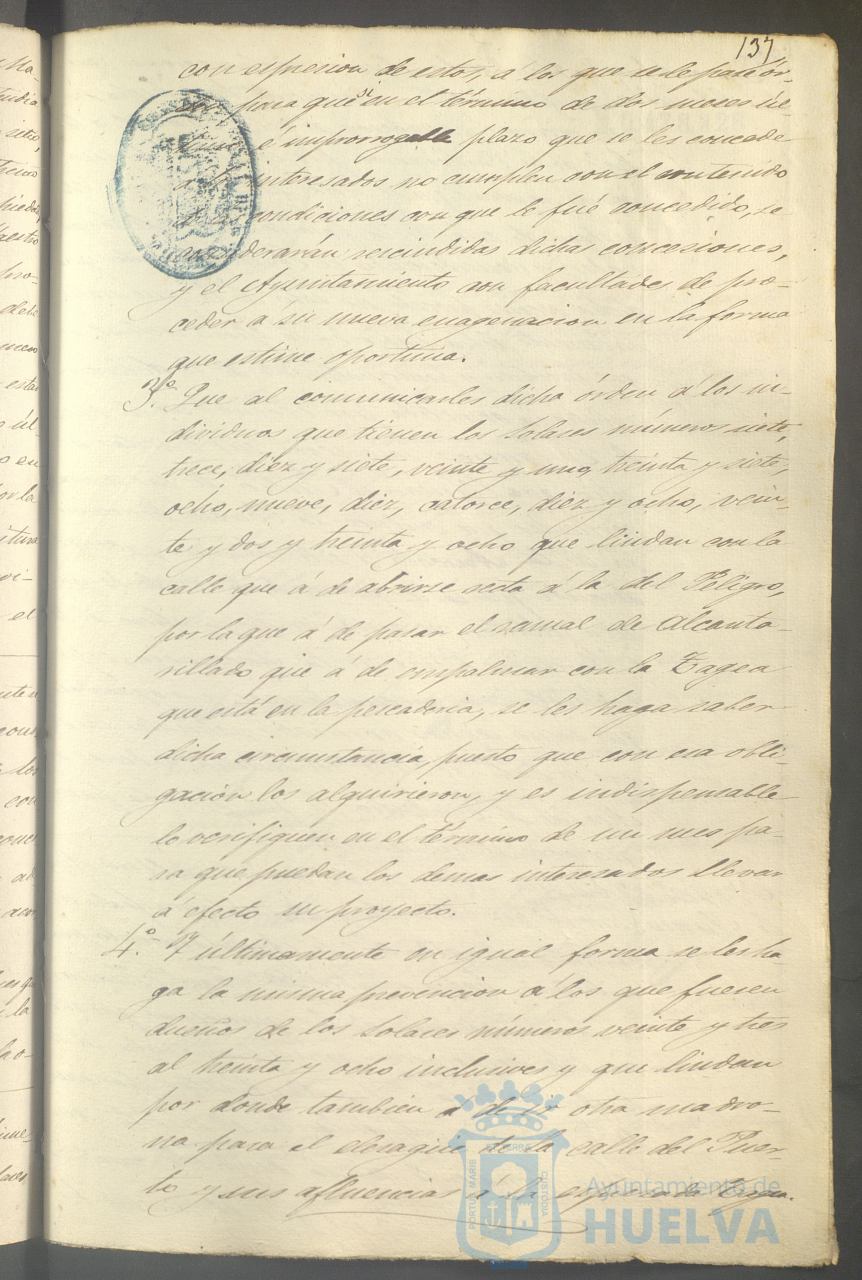 137
con espresion de estos, á los que se le pase ór-
den para que si en el término de dos meses úl-
timo é improrrogable plazo que se les concede
á los interesados no cumplen con el contenido
de las condiciones con que le fué concedido, se
considerarán rescindidas dichas concesiones,
y el Ayuntamiento con facultades de pro-
ceder á su nueva enagenacion en la forma
que estime oportuna.
3.º Que al comunicarles dicha órden á los in-
dividuos que tienen los solares números siete,
trece, diez y siete, veinte y uno, treinta y siete,
ocho, nueve, diez, catorce, diez y ocho, vein-
te y dos y treinta y ocho que lindan con la
calle que á de abrirse recta á la del Peligro,
por la que á de pasar el ramal de Alcanta-
rillado que á de empalmar con la Tagea
que está en la pescaderia, se les haga saber
dicha circunstancia, puesto que con esa obli-
gación los alquirieron, y es indispensable
lo verifiquen en el término de un mes pa-
ra que puedan los demas interesados llevar
á efecto su proyecto.
4.º Y últimamente en igual forma se les ha-
ga la misma prevencion á los que fueren
dueños de los solares números veinte y tres
al treinta y ocho inclusives y que lindan
por donde tambien a de ir otra madro-
na para el desagüe de la calle del Puer-
to y sus afluencias á la
PORTUS MARIS
TERRAE
CUSTODIA
Ayuntamiento de
HUELVA